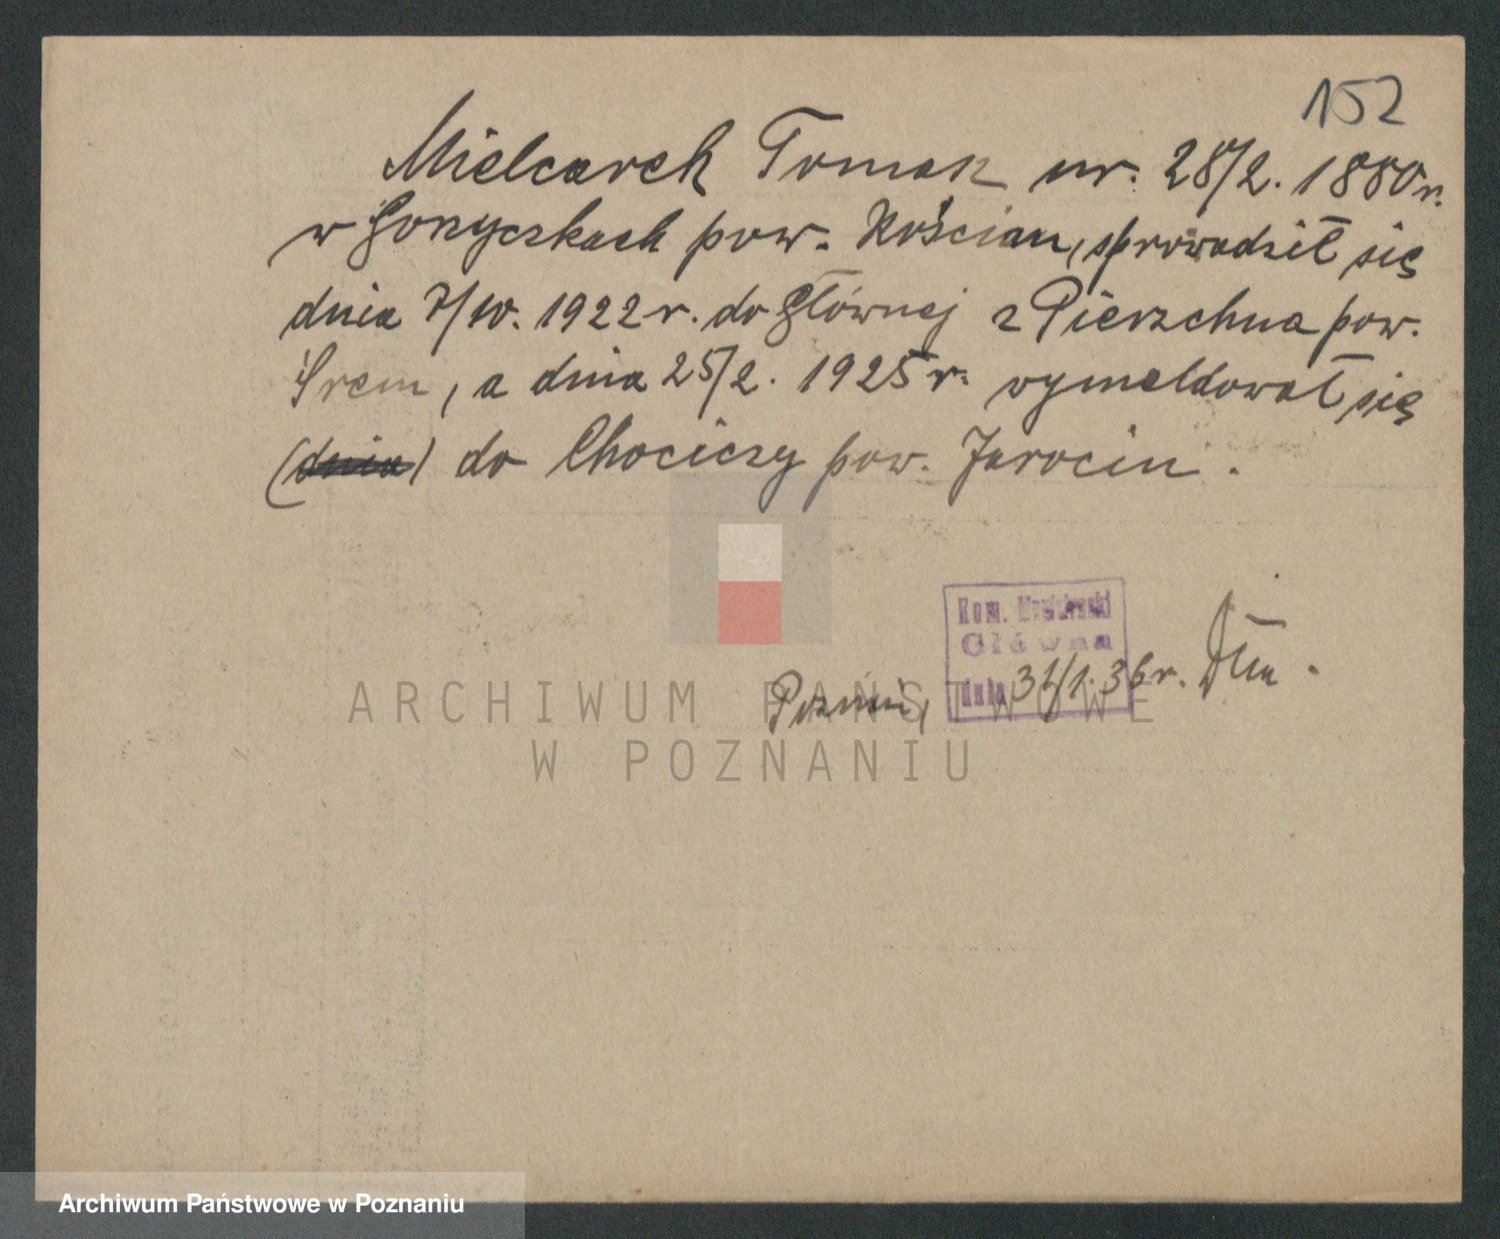 152
Mielcarek Tomasz ur. 28/2. 1880 r.
w Gorzyczkach pow. Kościan, sprowadził się
dnia 7/IV. 1922 r. do Głównej z Pierzchna pow.
Śrem, a dnia 25/2. 1925 r. wymeldował się
(dnia) do Chociczy pow. Jarocin.
Kom.
Główna
Poznań, dnia 31/1. 36 r.
ARCHIWUM PAŃSTWOWE
W POZNANIU
Archiwum Państwowe w Poznaniu